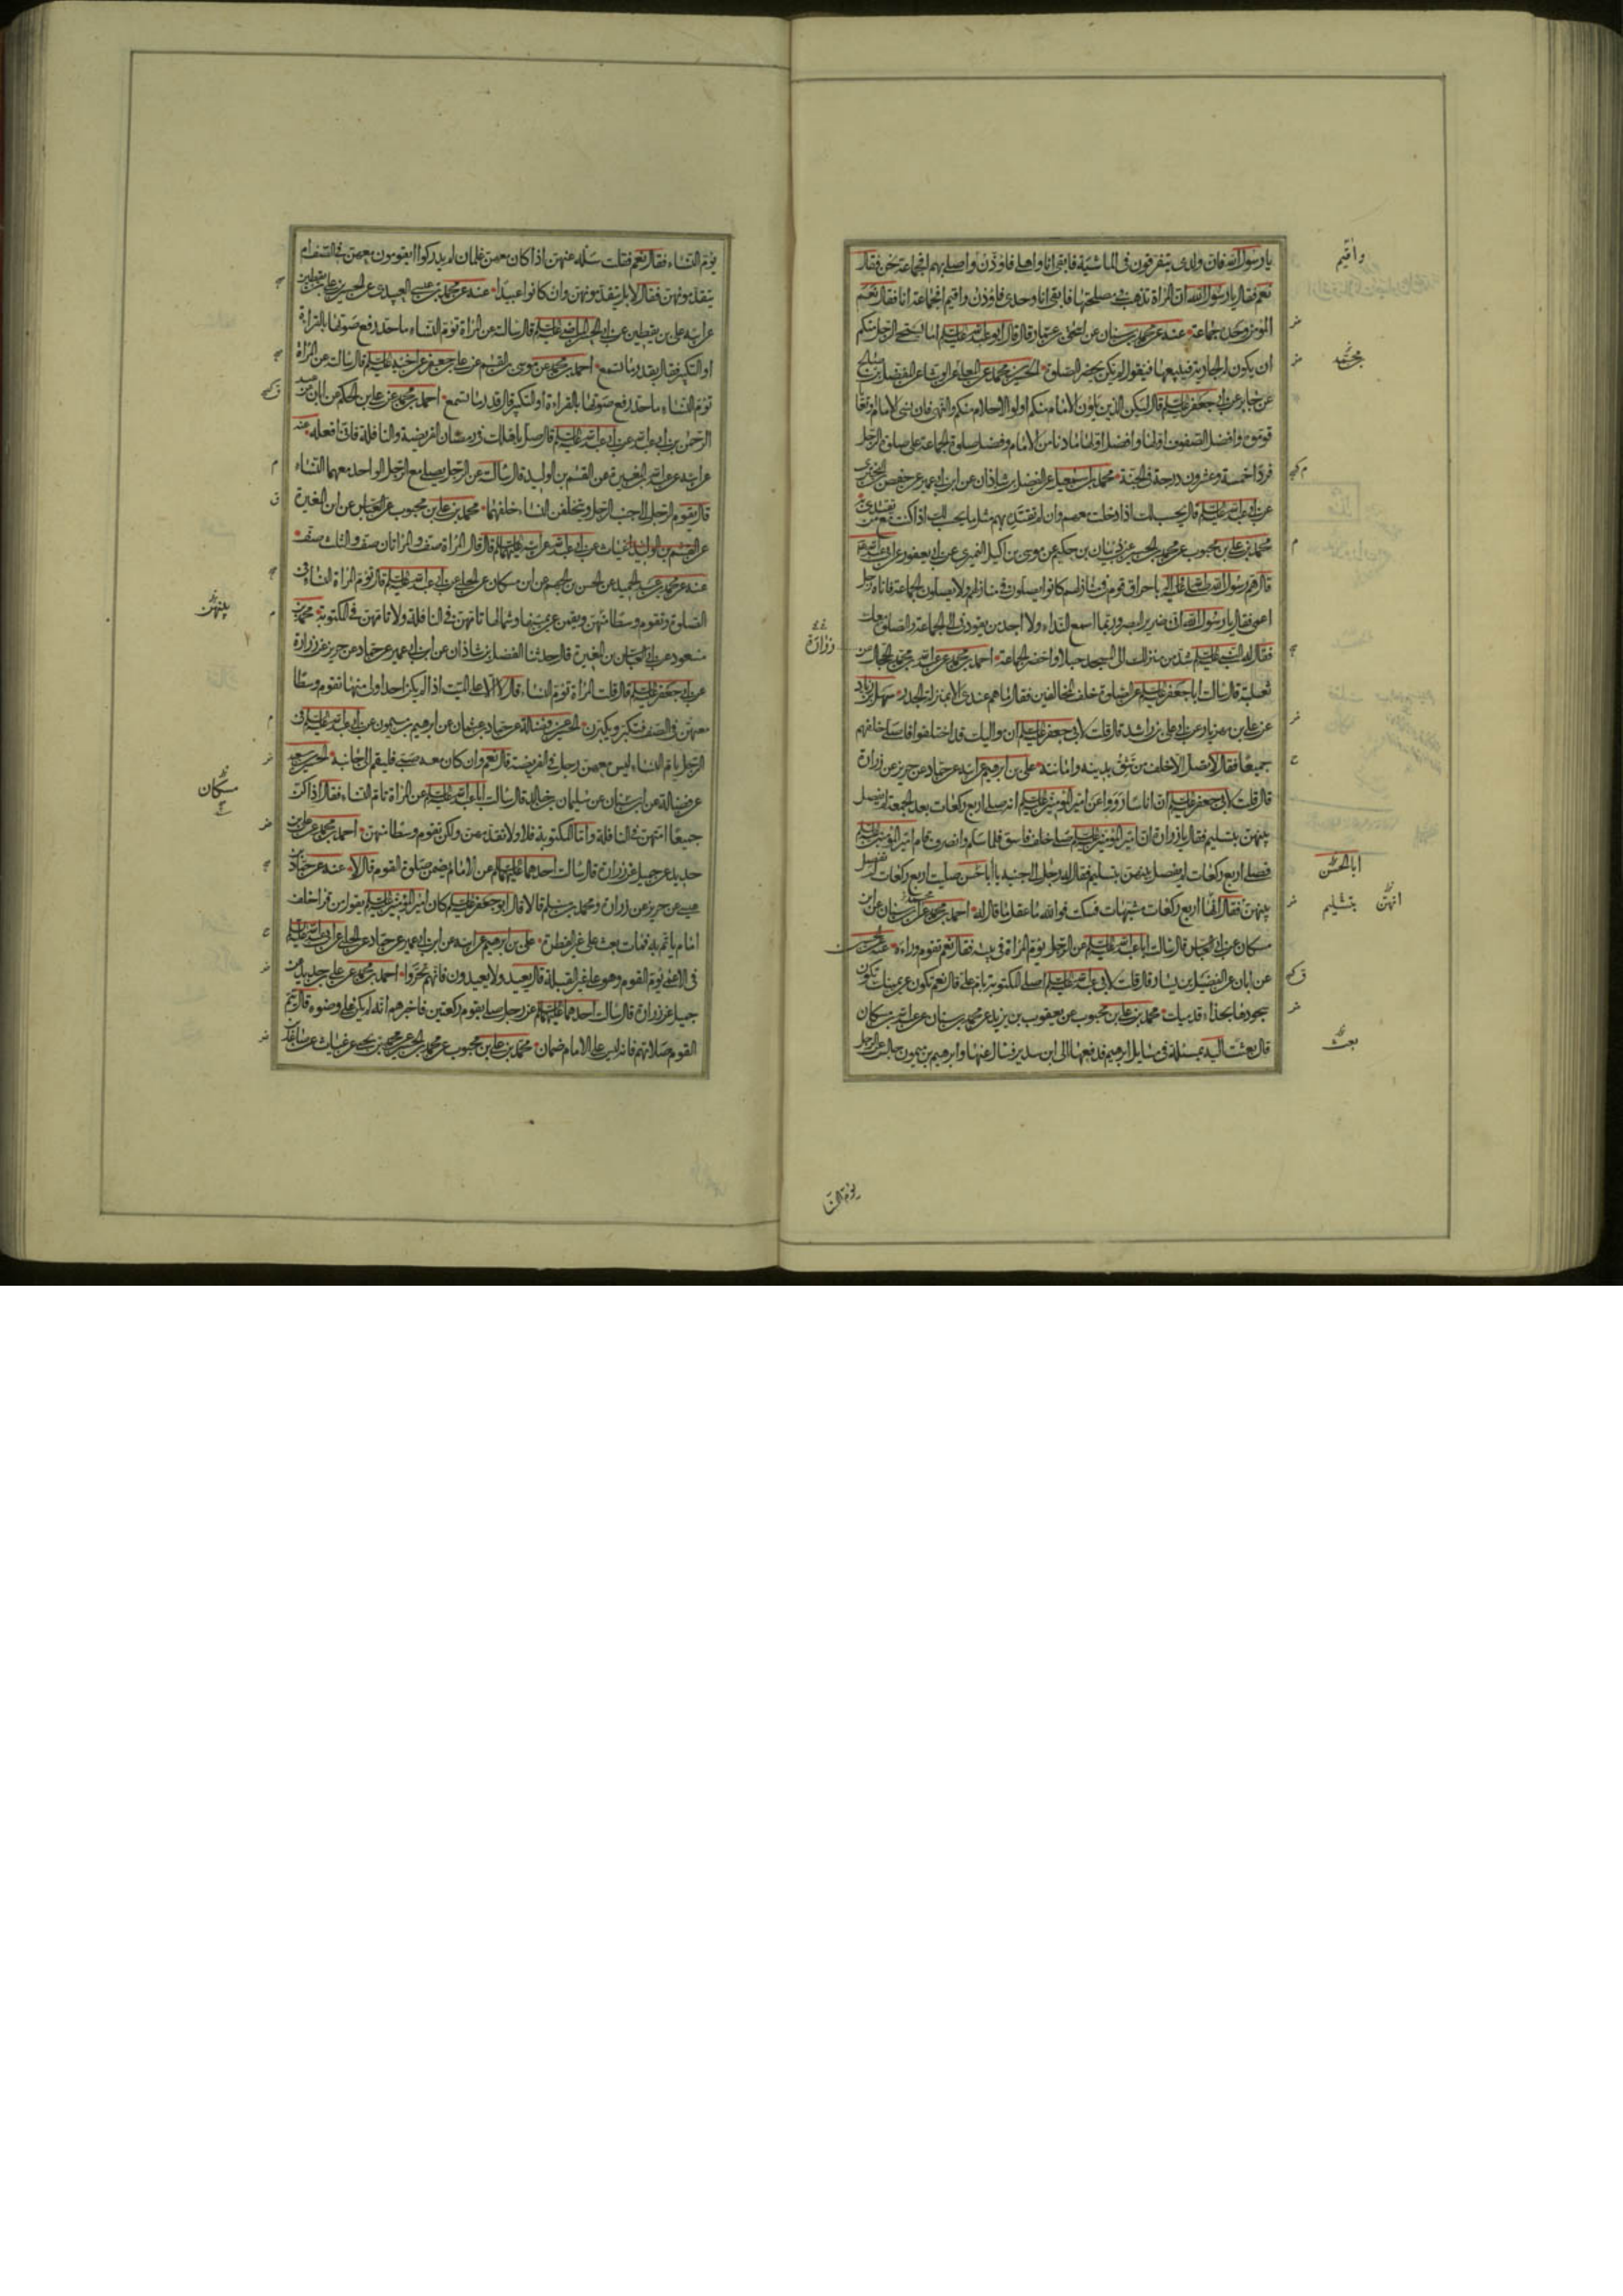 يا رسول الله فان ولدى يتفرقون فى الماشية فابقى انا واهلى فاؤذن واقيم واصلى بهم افجماعة نحن فقال
نعم فقال يا رسول الله ان المراة تذهب فى مصلحتها فابقى انا وحدى فاؤذن واقيم افجماعة انا فقال نعم
المؤمن وحده جماعة عنه عن محمد بن سنان عن اسحق بن عمار قال قال ابو عبد الله عليه السلم اما يستحيى الرجل منكم
ان يكون له الجارية فيبيعها فيقول لم يكن يحضر الصلوة الحسين بن محمد عن المعلى عن الوشا عن المفضل بن صالح
عن جابر عن ابى جعفر عليه السلم قال ليكن الذين يلون الامام منكم اولوا الاحلام منكم والنهى فان نسى الامام او تعايا
قوموه وافضل الصفوف اولها وافضل اولها ما دنا من الامام وفضل صلوة الجماعة على صلوة الرجل
فردا خمسة وعشرون درجة فى الجنة محمد بن اسمعيل عن الفضل بن شاذان عن ابن ابى عمير عن حفص بن البخترى
عن ابى عبد الله عليه السلم قال يحسب لك اذا دخلت معهم وان لم تقتد بهم مثل ما يحسب لك اذا كنت مع من يقتدى به
محمد بن على بن محبوب عن محمد بن الحسين عن ذبيان بن حكيم عن موسى بن اكيل النميرى عن ابن ابى يعفور عن ابى عبد الله عليه السلم
قال هم رسول الله صلى الله عليه واله باحراق قوم فى منازلهم كانوا يصلون فى منازلهم ولا يصلون الجماعة فاتاه رجل
اعمى فقال يا رسول الله انى ضرير البصر وربما اسمع النداء ولا اجد من يقودنى الى الجماعة والصلوة معك
فقال له النبى عليه السلم شد من منزلك الى المسجد حبلا واحضر الجماعة احمد بن محمد عن عبد الله بن محمد الحجال عن
ثعلبة قال سالت ابا جعفر عليه السلم عن الصلوة خلف المخالفين فقال ما هم عندى الا بمنزلة الجدر سهل بن زياد
عن على بن مهزيار عن ابى على بن راشد قال قلت لابى جعفر عليه السلم ان مواليك قد اختلفوا فاصلى خلفهم
جميعا فقال لا تصل الا خلف من تثق بدينه وامانته على بن ابرهيم عن ابيه عن حماد عن حريز عن زرارة
قال قلت لابى جعفر عليه السلم ان اناسا رووا عن امير المؤمنين عليه السلم انه صلى اربع ركعات بعد الجمعة لم يفصل
بينهن بتسليم فقال يا زرارة ان امير المؤمنين عليه السلم صلى خلف فاسق فلما سلم وانصرف قام امير المؤمنين عليه السلم
فصلى اربع ركعات لم يفصل بينهن بتسليم فقال له رجل الى جنبه يا ابا حسن صليت اربع ركعات لم تفصل
بينهن فقال انها اربع ركعات مشبهات فسكت فوالله ما عقل ما قال له احمد بن محمد عن ابن سنان عن ابن
مسكان عن ابى العباس قال سالت ابا عبد الله عليه السلم عن الرجل يؤم المراة فى بيته فقال نعم تقوم وراءه عنه عن الحسن
عن ابان عن الفضيل بن يسار قال قلت لابى عبد الله عليه السلم اصلى المكتوبة بام على قال نعم تكون عن يمينك تكون
سجودها بحذاء قدميك محمد بن على بن محبوب عن يعقوب بن يزيد عن محمد بن سنان عن عبد الله بن مسكان
قال بعثت اليه بمسئلة فى مسايل ابرهيم فدفعها الى ابن سدير فسال عنها وابرهيم بن ميمون جالس عن الرجل
واقيم
اباالحسن
انهن بتسليم
بعث
زرارة
يؤم النسا
يؤم النساء فقال نعم فقلت سله عنهن اذا كان معهن غلمان لم يدركوا ايقومون معهن فى الصف ام
يتقدمونهن فقال لا بل يتقدمونهن وان كانوا عبيدا عنه عن محمد بن عيسى العبيدى عن الحسين بن على بن يقطين
عن ابيه على بن يقطين عن ابى الحسن الماضى عليه السلم قال سالته عن المراة تؤم النساء ما حد رفع صوتها بالقراءة
او التكبير فقال بقدر ما تسمع احمد بن محمد عن موسى بن القسم عن على بن جعفر عن اخيه عليه السلم قال سالته عن المراة
تؤم النساء ما حد رفع صوتها بالقراءة او التكبير قال قدر ما تسمع احمد بن محمد عن على بن الحكم عن ابان عن عبد
الرحمن بن ابى عبد الله عن ابى عبد الله عليه السلم قال صل باهلك فى رمضان الفريضة والنافلة فانى افعله عنه
عن ابيه عن عبد الله بن المغيرة عن القسم بن الوليد قال سالته عن الرجل يصلى مع الرجل الواحد معهما النساء
قال يقوم الرجل الى جنب الرجل ويتخلفن النساء خلفهما محمد بن على بن محبوب عن العباس عن ابن المغيرة
عن القسم بن الوليد عن غياث عن ابى عبد الله عن ابيه عليهما السلم قال قال المراة صف والمراتان صف والثلث صف
عنه عن محمد بن عبد الحميد عن الحسن بن الجهم عن ابن مسكان عن الحلبى عن ابى عبد الله عليه السلم قال تؤم المراة النساء فى
الصلوة وتقوم وسطا منهن ويقمن عن يمينها وشمالها تامهن فى النافلة ولا تامهن فى المكتوبة محمد بن
مسعود عن ابى العباس بن المغيرة قال حدثنا الفضل بن شاذان عن ابن ابى عمير عن حماد عن حريز عن زرارة
عن ابى جعفر عليه السلم قال قلت المراة تؤم النساء قال لا الا على الميت اذا لم يكن احد اولى منها تقوم وسطا
معهن فى الصف فتكبر ويكبرن الحسين عن فضالة عن حماد بن عثمان عن ابرهيم بن ميمون عن ابى عبد الله عليه السلم فى
الرجل يام النساء ليس معهن رجل فى الفريضة قال نعم وان كان معه صبى فليقم الى جانبه الحسين بن سعيد
عن فضالة عن ابن سنان عن سليمان بن خالد قال سالت ابا عبد الله عليه السلم عن المراة تام النساء فقال اذا كن
جميعا امتهن فى النافلة واما المكتوبة فلا ولا تقدمهن ولكن تقوم وسطا منهن احمد بن محمد عن على بن
حديد عن جميل عن زرارة قال سالت احدهما عليهما السلم عن الامام يضمن صلوة القوم قال لا عنه عن حماد بن
عيسى عن حريز عن زرارة ومحمد بن مسلم قالا قال ابو جعفر عليه السلم كان امير المؤمنين عليه السلم يقول من قرا خلف
امام ياتم به فمات بعث على غير الفطرة على بن ابرهيم عن ابيه عن ابن ابى عمير عن حماد عن الحلبى عن ابى عبد الله عليه السلم
فى الاعمى يؤم القوم وهو على غير القبلة قال يعيد ولا يعيدون فانهم تحروا احمد بن محمد عن على بن حديد عن
جميل عن زرارة قال سالت احدهما عليهما السلم عن رجل صلى بقوم ركعتين فاخبرهم انه لم يكن على وضوء قال يتم
القوم صلاتهم فانه ليس على الامام ضمان محمد بن على بن محبوب عن محمد بن الحسين عن محمد بن يحيى عن غياث
بينهن
مسكان